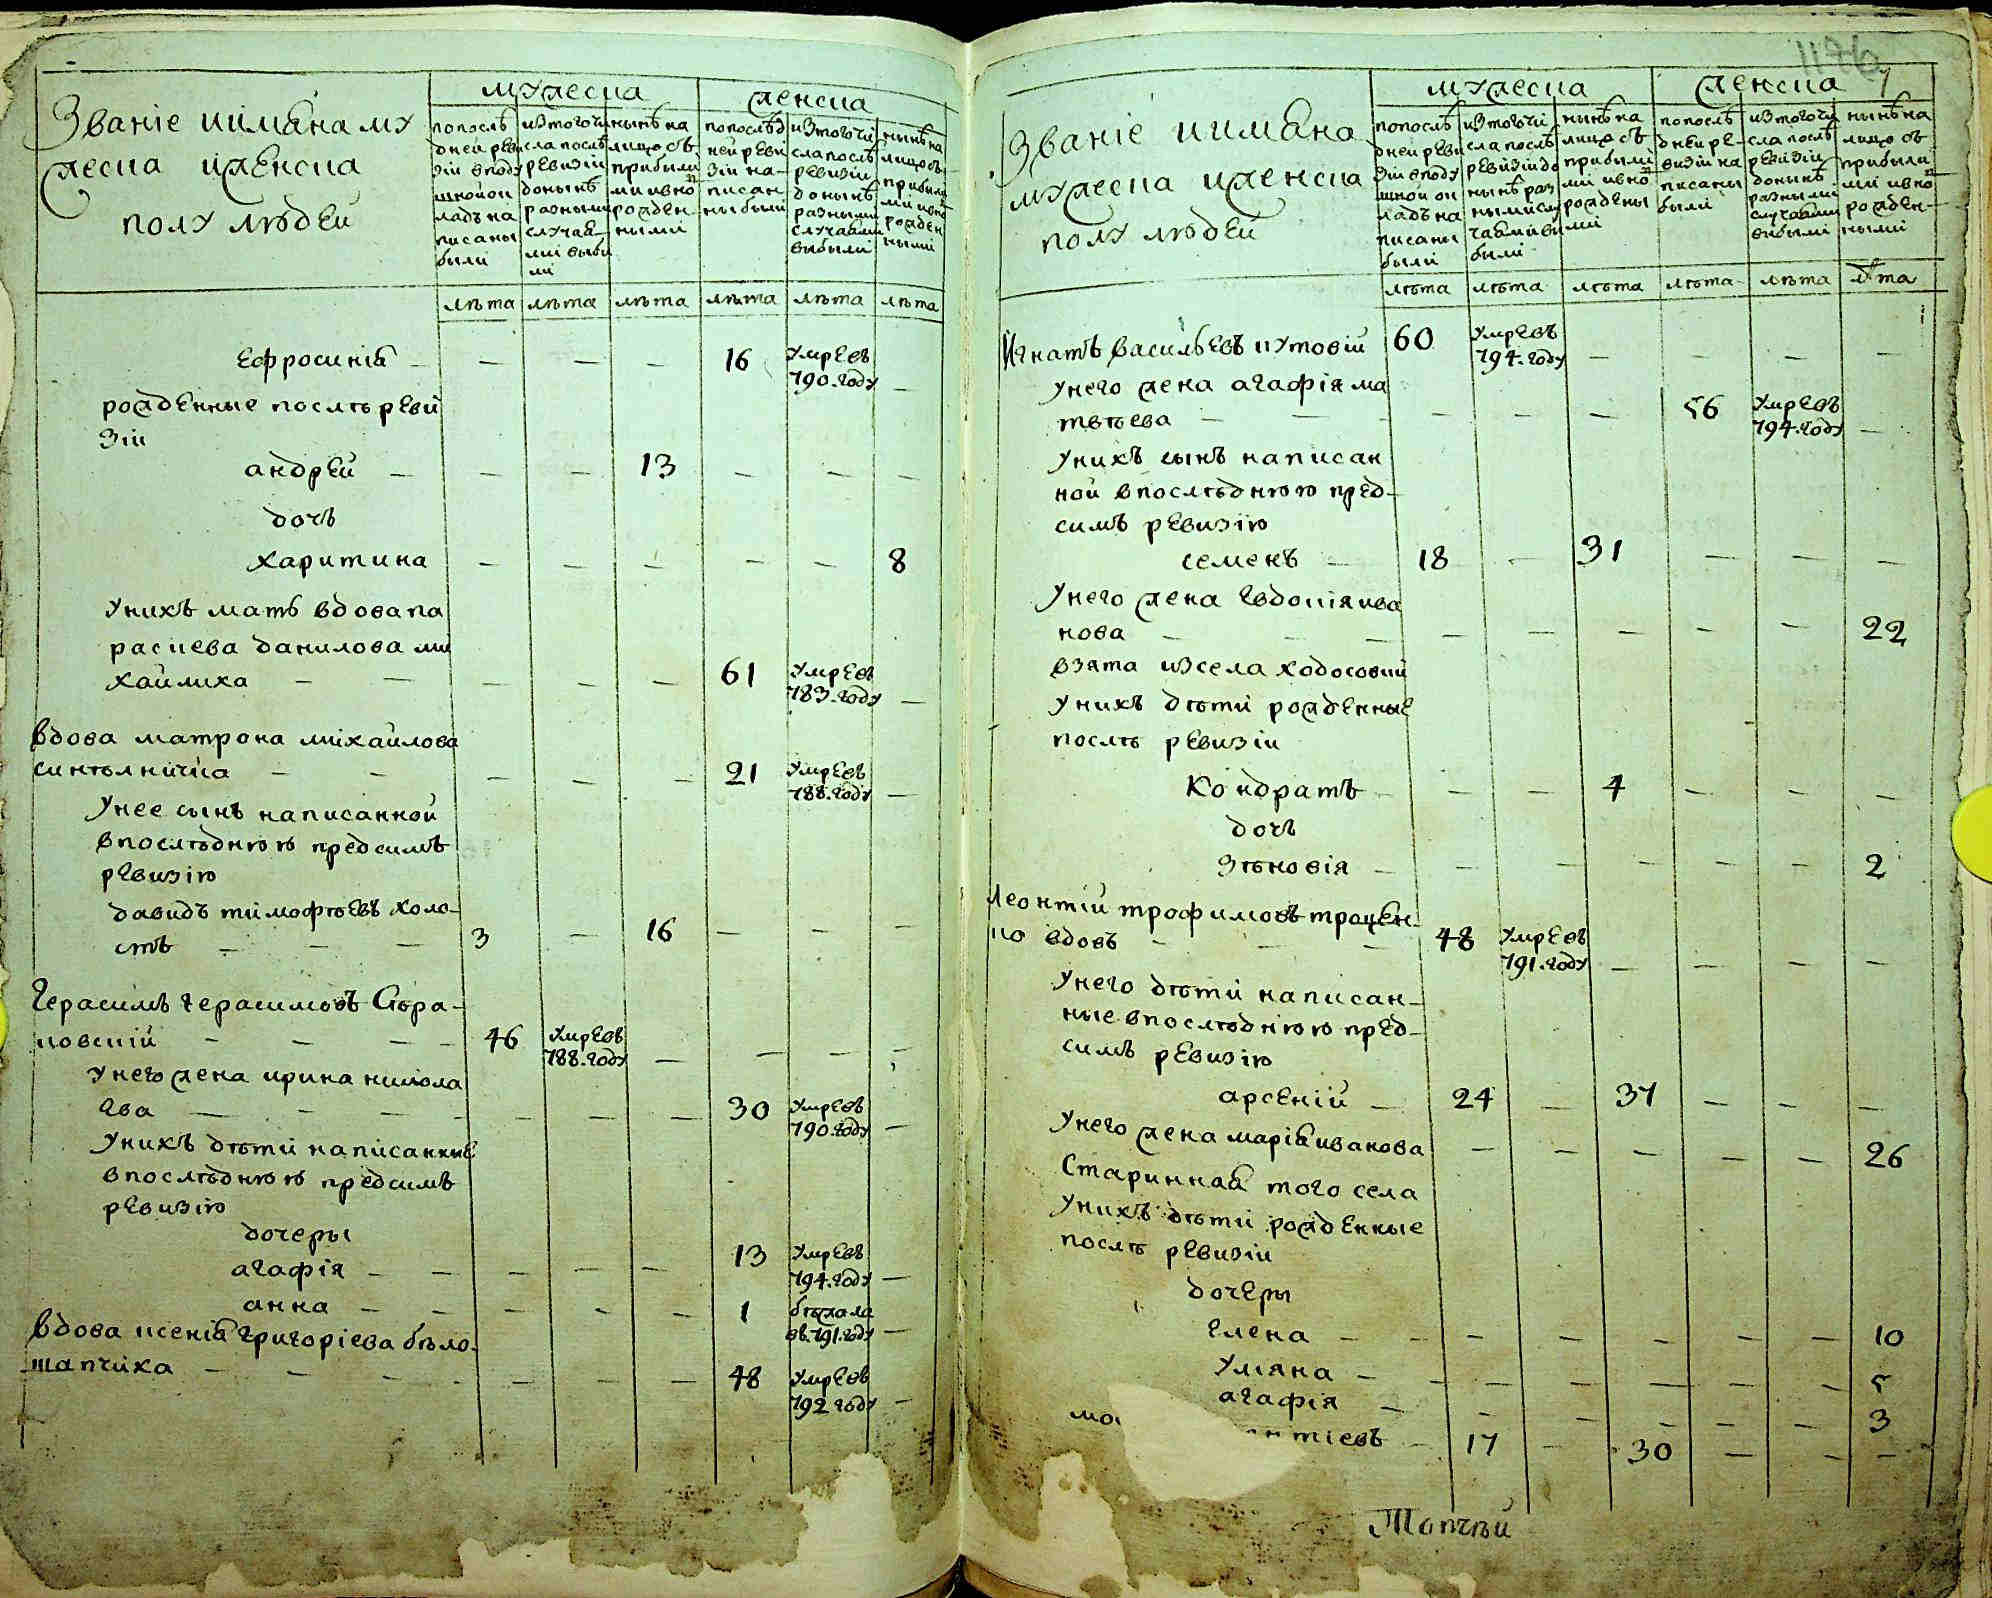 Званіе иимяна му
жеска иженска
полу людей
мужеска
женска
попослѣ
дней реви
зіи вподу
шной ок
ладъ на
писаны
были
изтогочи
сла послѣ
ревизіи
донынѣ
разными
случая
ми выбы
ли
нынѣ на
лицо съ
прибылы
ми ивно
рожден
ными
попослѣд
ней реви
зіи на
писан
ны были
изтогочи
сла послѣ
ревизіи
донынѣ
разными
случаями
выбыли
нынѣ на
лицо съ
прибылы
ми ивно
рожден
ными
лѣта лѣта лѣта лѣта лѣта лѣта
Ефросинія — — — — 16 умре въ
790. году —
рожденные послѣ реви
зіи
андрей — — — 13 — — —
дочь
Харитина — — — — — 8
Унихъ мать вдова па
раскева данилова ми
хайлиха — — — — — 61 умре въ
783. году —
вдова матрона михайлова
синѣлничка — — — — — 21 умре въ
788. году —
Унее сынъ написанной
впослѣднюю предсимъ
ревизію
давидъ тимофѣевъ холо-
стъ — — — 3 — 16 — — —
Герасимъ герасимовъ Сѣра-
ковскій — — — — 46 умре въ
788. году — — — —
Унего жена ирина никола
ева — — — — — — — 30 умре въ
790. году —
Унихъ дѣти написанные
впослѣднюю предсимъ
ревизію
дочеры
агафія — — — — — 13 умре въ
794. году —
анна — — — — — 1 бѣжала
въ. 791. году —
вдова ксенія григоріева бѣло-
шапчиха — — — — — — 48 умре въ
792 году —
1176
Званіе иимяна
мужеска иженска
полу людей
мужеска
женска
попослѣ
дней реви
зіи вподу
шной ок
ладъ на
писаны
были
изтогочи
сла послѣ
ревизіи до
нынѣ раз
ными слу
чаями вы
были
нынѣ на
лицо съ
прибылы
ми ивно
рожденны
ми
попослѣ
дней ре-
визіи на
писаны
были
изтогочи
сла послѣ
ревизіи
донынѣ
разными
случаями
выбыли
нынѣ на
лицо съ
прибылы
ми ивно
рожден-
ными
лѣта лѣта лѣта лѣта лѣта лѣта
Игнатъ васильевъ кутовій 60 умре въ
794. году — — — —
Унего жена агафія ма
твѣева — — — — — — 56 умре въ
794. году —
Унихъ сынъ написан
ной впослѣднюю пред-
симъ ревизію
семенъ — 18 — 31 — — —
Унего жена Евдокія ива
нова — — — — — — — — 22
взята изсела ходосовки
Унихъ дѣти рожденные
послѣ ревизіи
Кондратъ — — — 4 — — —
дочь
Зѣновія — — — — — — 2
Леонтій трофимовъ троцен-
ко вдовъ — — — 48 умре въ
791. году — — — —
Унего дѣти написан-
ные впослѣднюю пред-
симъ ревизію
арсеній — 24 — 37 — — —
Унего жена марія иванова — — — — — 26
Старинная того села
Унихъ дѣти рожденные
послѣ ревизіи
дочеры
Елена — — — — — — — 10
Уліяна — — — — — — 5
агафія — — — — — — 3
нтіевъ — 17 — 30 — — —